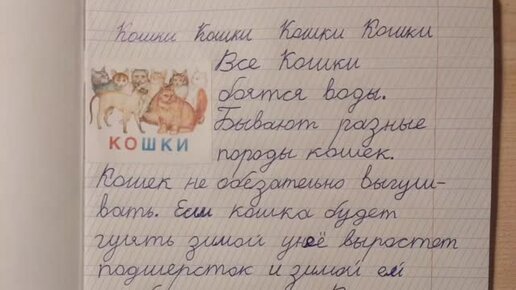 Кошки Кошки Кошки Кошки
Все Кошки
боятся воды.
Бывают разные
породы кошек.
КОШКИ
Кошек не обезательно выгули-
вать. Если кошка будет
гулять зимой унеё выростет
подшерсток и зимой ей